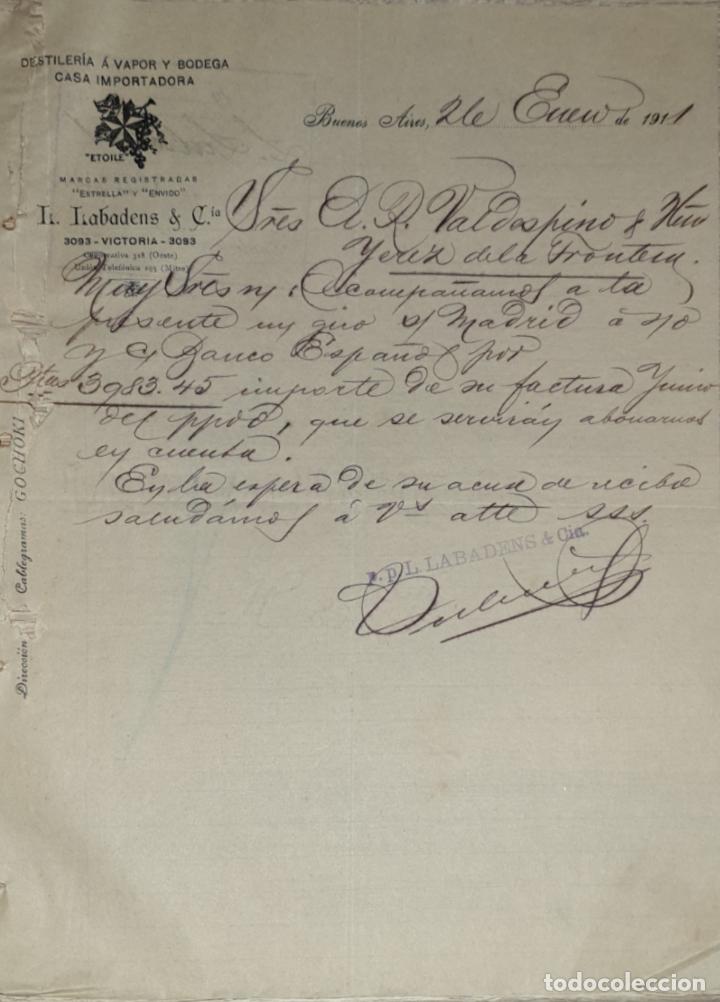 DESTILERÍA Á VAPOR Y BODEGA
CASA IMPORTADORA
"ETOILE"
MARCAS REGISTRADAS
"ESTRELLA" Y "ENVIDO"
L. Labadens & C.ía
3093 - VICTORIA - 3093
Cooperativa 318 (Oeste)
Unión Telefónica 195 (Mitre)
Dirección Cablegramas: GOCHOKI
Buenos Aires, 26 Enero de 1911
Sres A. R. Valdespino & Hno
Yeréz de la Frontera.
Muy Sres ns: Acompañamos a la
presente un giro s/ Madrid á
y c/ Banco Español por
Ptas 3983.45 importe de su factura Junio
del ppdo, que se servirán abonarnos
en cuenta.
En la espera de su acuse de recibo
saludámos á Vs atte sss.
p. p. L. LABADENS & Cia.
todocoleccion.net